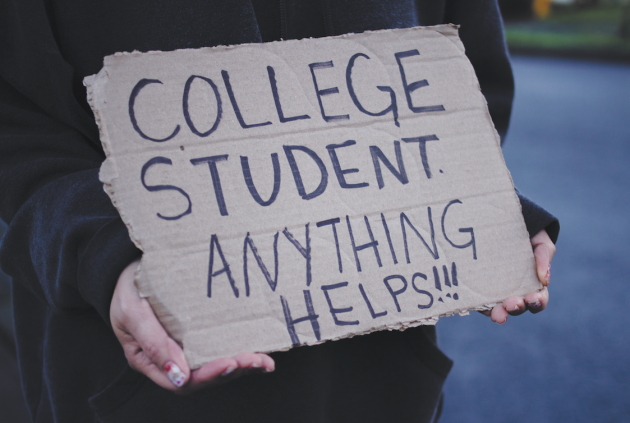 COLLEGE
STUDENT.
ANYTHING
HELPS!!!